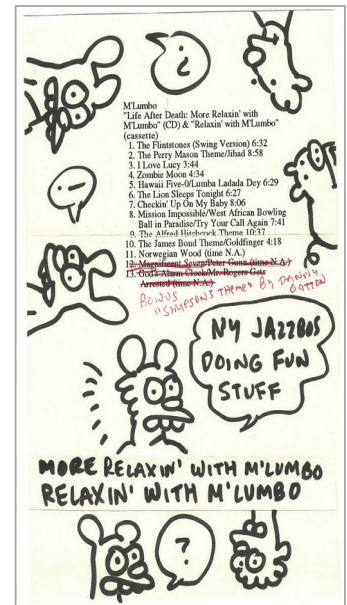 M'Lumbo
"Life After Death: More Relaxin' with
M'Lumbo" (CD) & "Relaxin' with M'Lumbo"
(cassette)
1. The Flintstones (Swing Version) 6:32
2. The Perry Mason Theme/Jihad 8:58
3. I Love Lucy 3:44
4. Zombie Moon 4:34
5. Hawaii Five-0/Lumba Ladada Dey 6:29
6. The Lion Sleeps Tonight 6:27
7. Checkin' Up On My Baby 8:06
8. Mission Impossible/West African Bowling
Ball in Paradise/Try Call Again 7:41
9. The Alfred Hitchcock Theme 10:37
10. The James Bond Theme/Goldfinger 4:18
11. Norwegian Wood (time N.A.)
12. Magnificent Seven/Peter Gunn (time N.A.)
13. God's Alarm Clock/Mr. Rogers Gets
Arrested (time N.A.)
BONUS
"SIMPSONS THEME" BY DANNY
NY JAZZBOS
DOING FUN
STUFF
MORE RELAXIN' WITH M'LUMBO
RELAXIN' WITH M'LUMBO
?